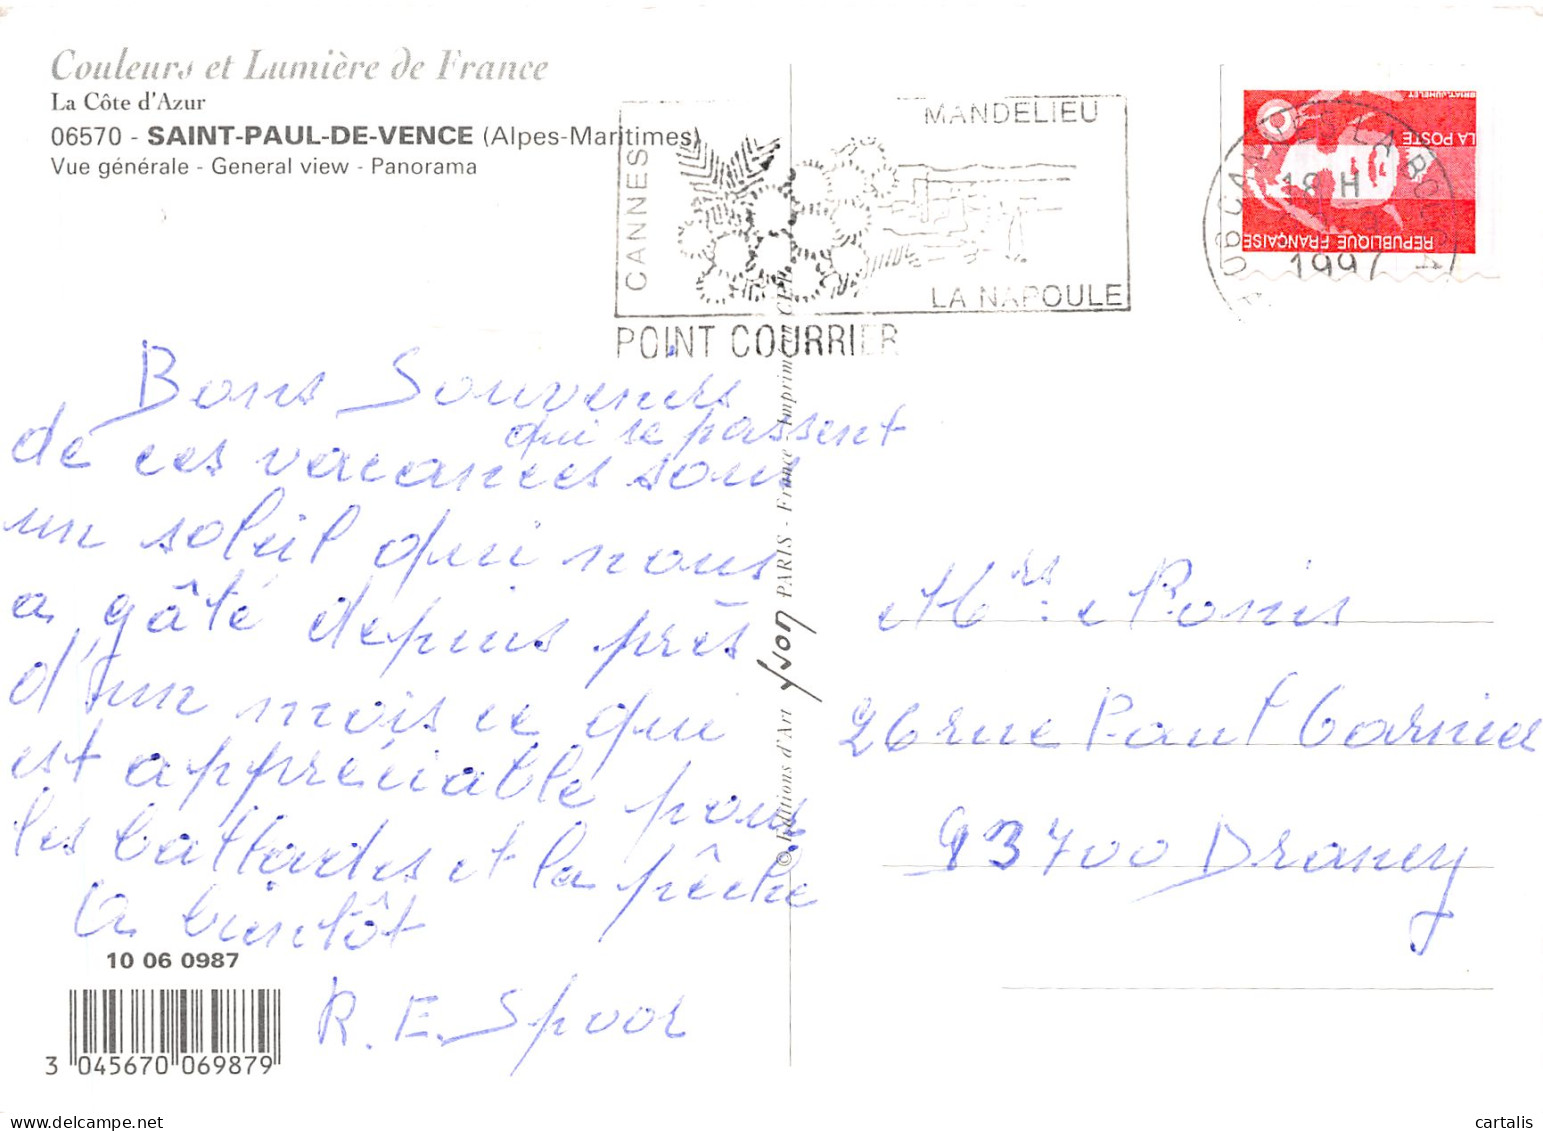 Couleurs et Lumière de France
La Côte d'Azur
06570 - SAINT-PAUL-DE-VENCE (Alpes-Maritimes)
Vue générale - General view - Panorama
CANNES
MANDELIEU
LA NAPOULE
POINT COURRIER
LA POSTE
REPUBLIQUE FRANÇAISE
18 H
1997
Bons Souvenirs
qui se passent
de ces vacances sous
un soleil qui nous
a gâté depuis près
d'un mois ce qui
est appréciable pour
les ballades et la pêche
A bientôt
R. E. Spoor
Mrs:
26 rue Paul Garnier
93700 Drancy
© Editions d'Art Yvon PARIS - France - Imprimé en
10 06 0987
3 045670 069879
cartalis